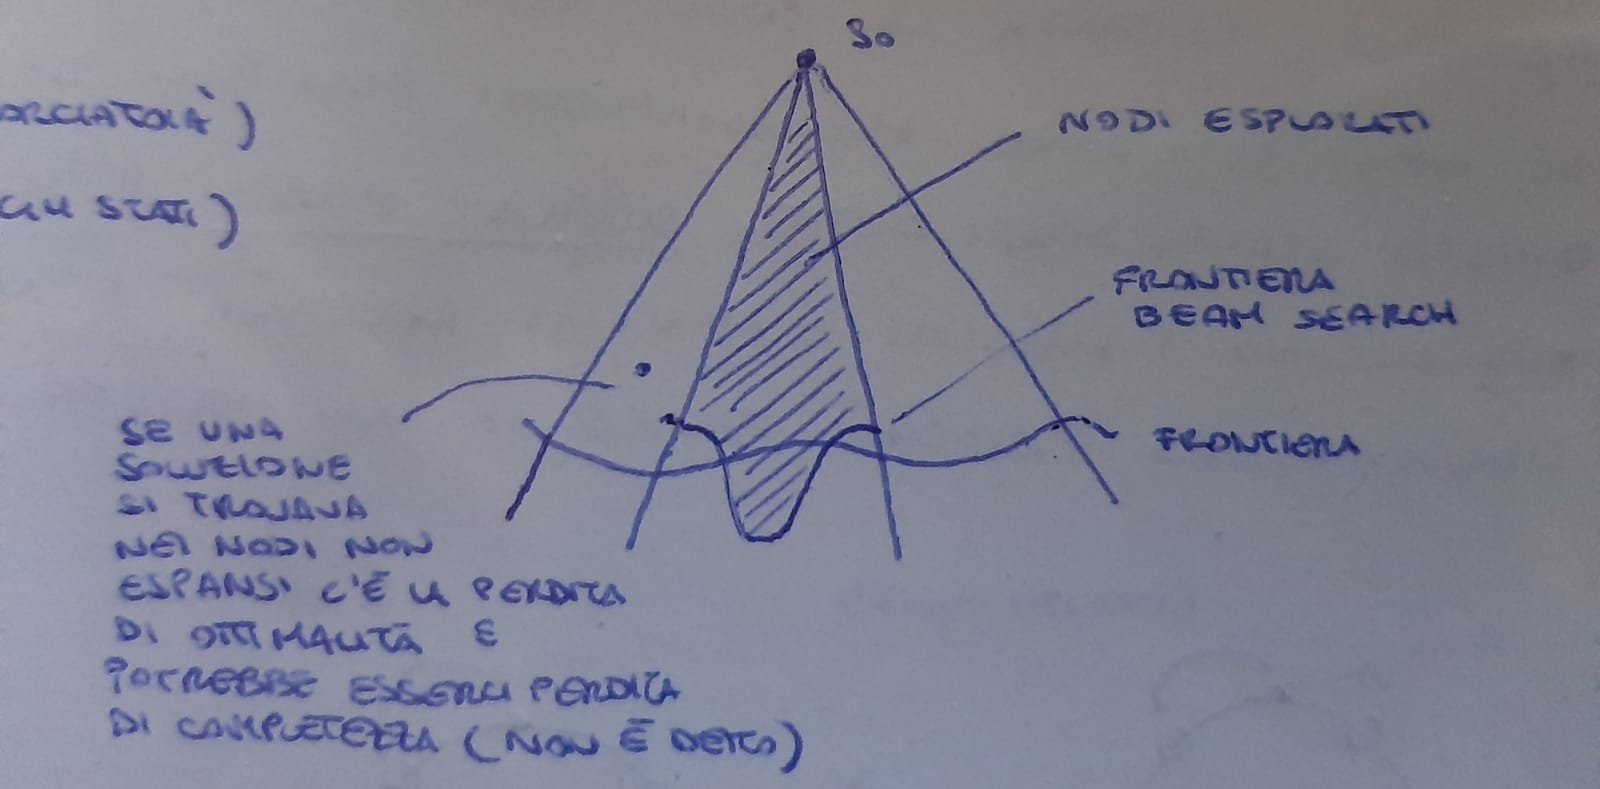 S0
NODI ESPLORATI
FRONTIERA
BEAM SEARCH
FRONTIERA
SE UNA
SOLUZIONE
SI TROVAVA
NEI NODI NON
ESPANSI C'È LA PERDITA
DI OTTIMALITÀ E
POTREBBE ESSERCI PERDITA
DI COMPLETEZZA (NON È DETTO)
STATI)